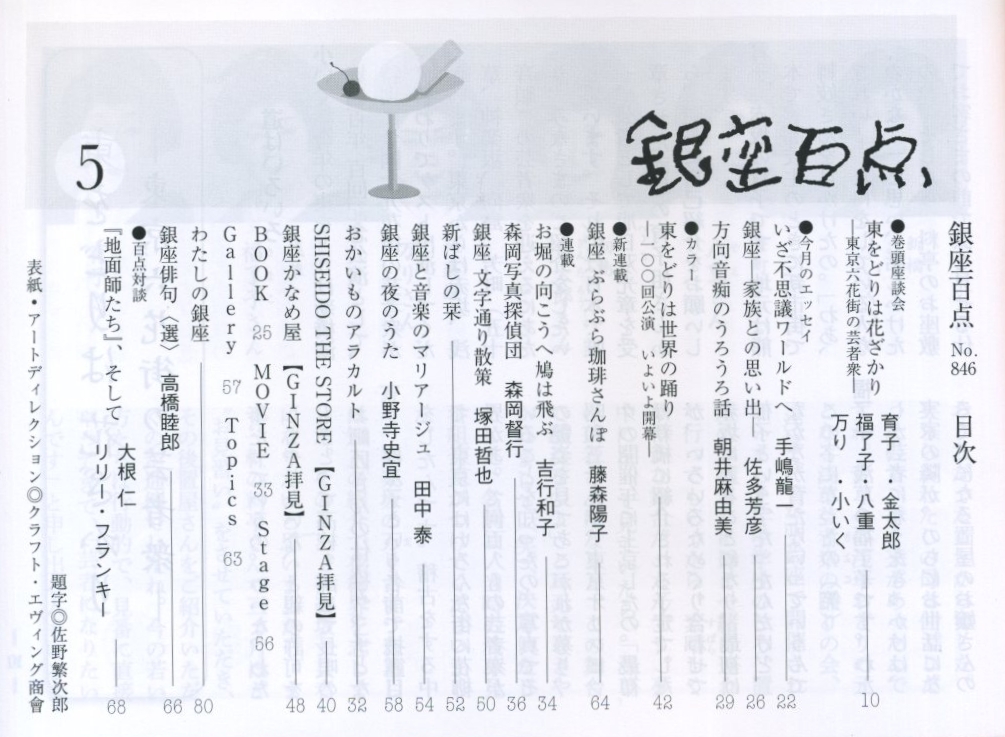 銀座百点
5
銀座百点 No.846 目次
●巻頭座談会
東をどりは花ざかり
―東京六花街の芸者衆
育子・金太郎
福了子・八重
万り・小いく
10
●今月のエッセイ
いざ不思議ワールドへ 手嶋龍一 22
銀座―家族との思い出― 佐多芳彦 26
方向音痴のうろうろ話 朝井麻由美 29
●カラー
東をどりは世界の踊り
―一〇〇回公演 いよいよ開幕― 42
●新連載
銀座 ぶらぶら珈琲さんぽ 藤森陽子 64
●連載
お堀の向こうへ鳩は飛ぶ 吉行和子 34
森岡写真探偵団 森岡督行 36
銀座 文字通り散策 塚田哲也 50
新ばしの栞 52
銀座と音楽のマリアージュ 田中 泰 54
銀座の夜のうた 小野寺史宜 58
おかいものアラカルト 32
SHISEIDO THE STORE【GINZA拝見】 40
銀座かなめ屋【GINZA拝見】 48
BOOK 25 MOVIE 33 Stage 56
Gallery 57 Topics 63
わたしの銀座 80
銀座俳句〈選〉 高橋睦郎 66
●百点対談
『地面師たち』、そして
大根 仁
リリー・フランキー
68
題字◎佐野繁次郎
表紙・アートディレクション◎クラフト・エヴィング商會